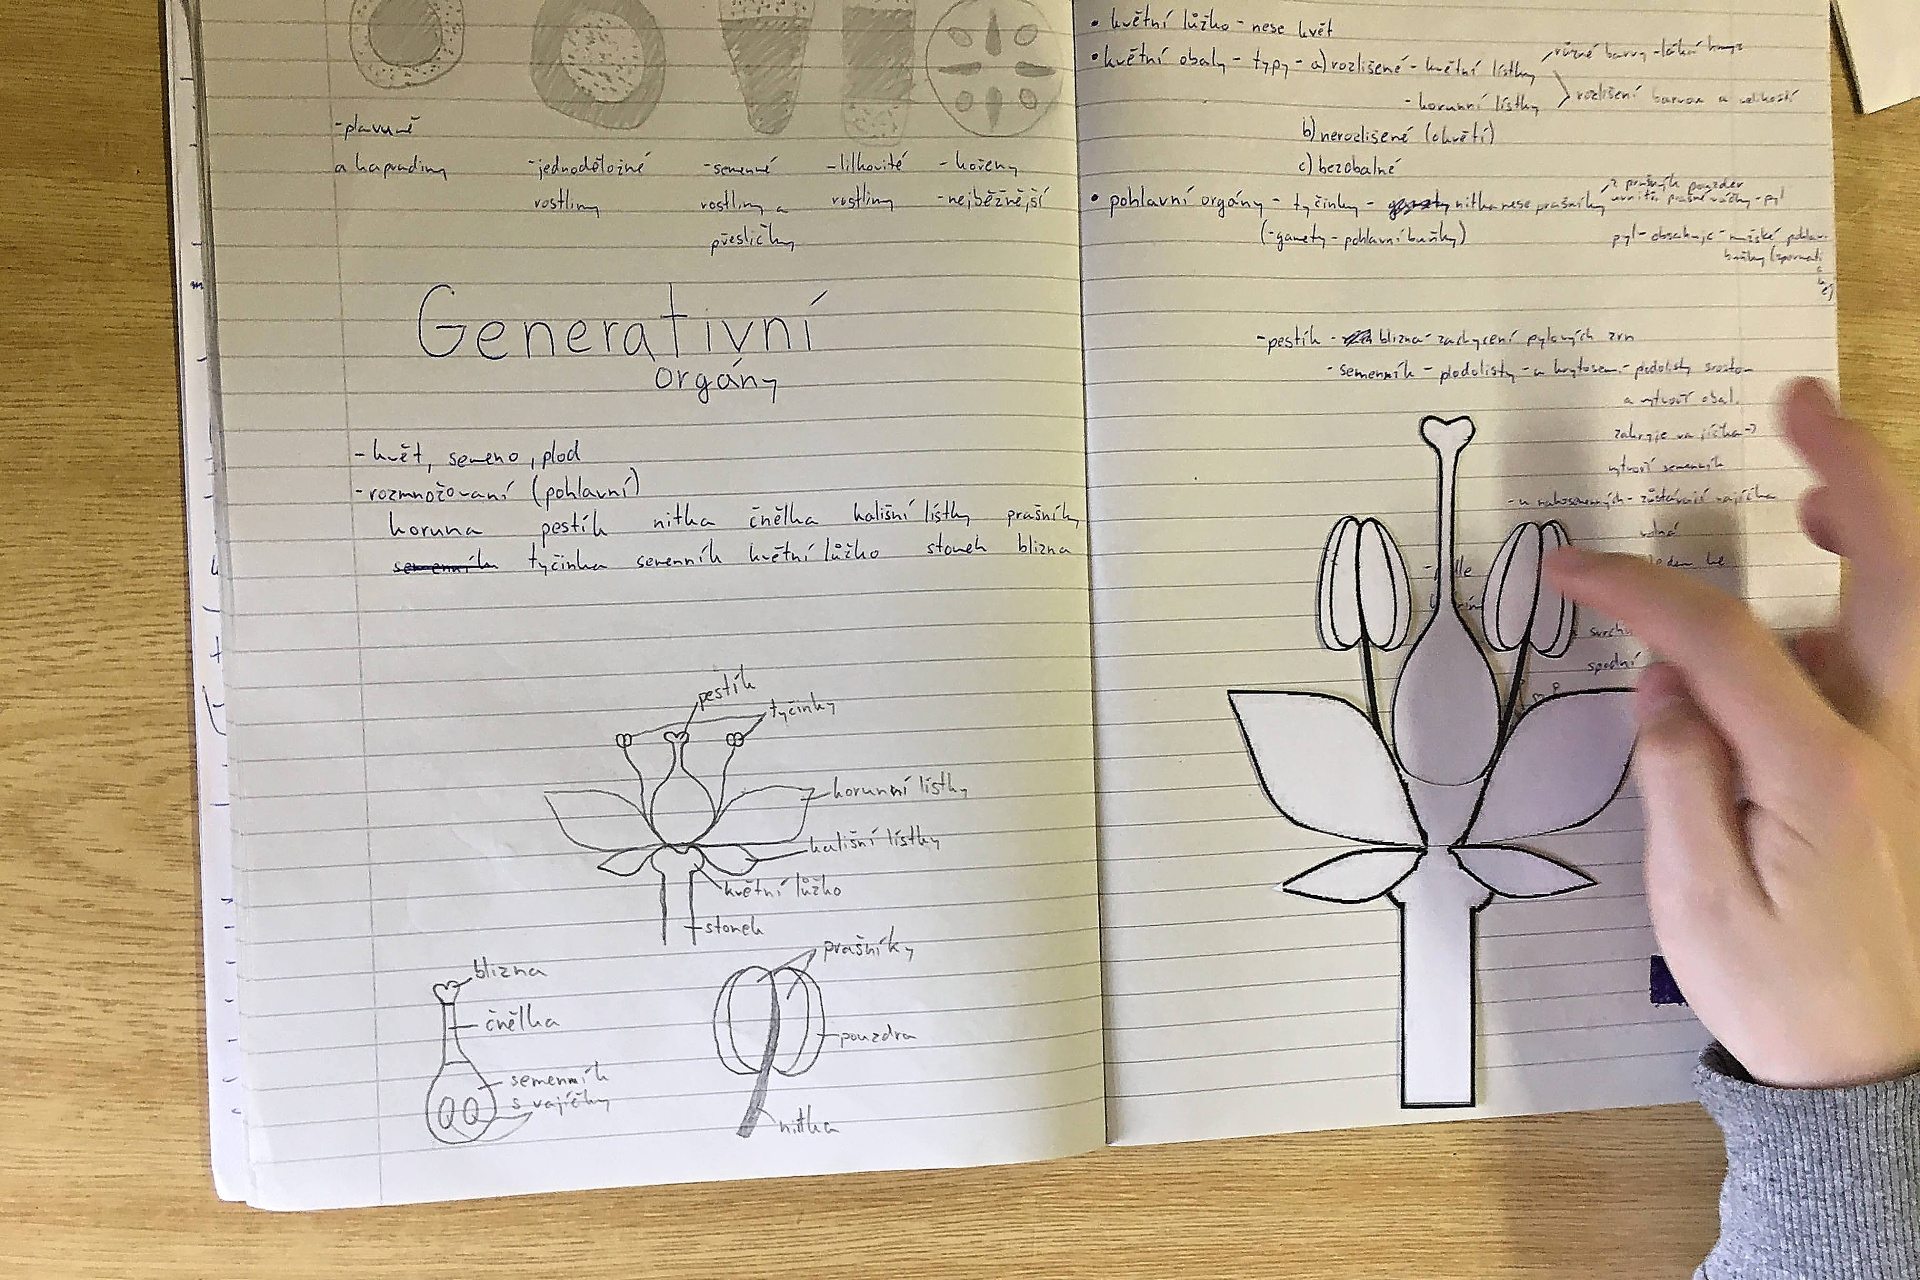 -plavuně
a kapradiny
-jednoděložné
rostliny
-semenné
rostliny a
přesličky
-lilkovité
rostliny
-kořeny
-nejběžnější
Generativní
orgány
-květ, semeno, plod
-rozmnožovaní (pohlavní)
koruna pestík nitka čnělka kališní lístky prašníky
semenník tyčinka semenník květní lůžko stonek blizna
pestík
tyčinky
korunní lístky
kališní lístky
květní lůžko
stonek
blizna
čnělka
semenník
s vajíčky
prašníky
pouzdra
nitka
• květní lůžko - nese květ
• květní obaly - typy - a) rozlišené - květní lístky
různé barvy - láká hmyz
- korunní lístky
rozlišení barvou a velikostí
b) nerozlišené (okvětí)
c) bezobalné
• pohlavní orgány - tyčinky - nitka nese prašníky
z prašných pouzder
uvnitř prašné váčky - pyl
(-gamety - pohlavní buňky)
pyl - obsahuje - mužské pohlav.
buňky
-pestík - blizna - zachycení pylových zrn
-semenník - plodolisty - u krytosem. - plodolisty srostou
a vytvoří obal.
zakryje vajíčka →
vytvoří semenník
- u nahosemenných - zůstávají vajíčka
volná
svrchu
spodní